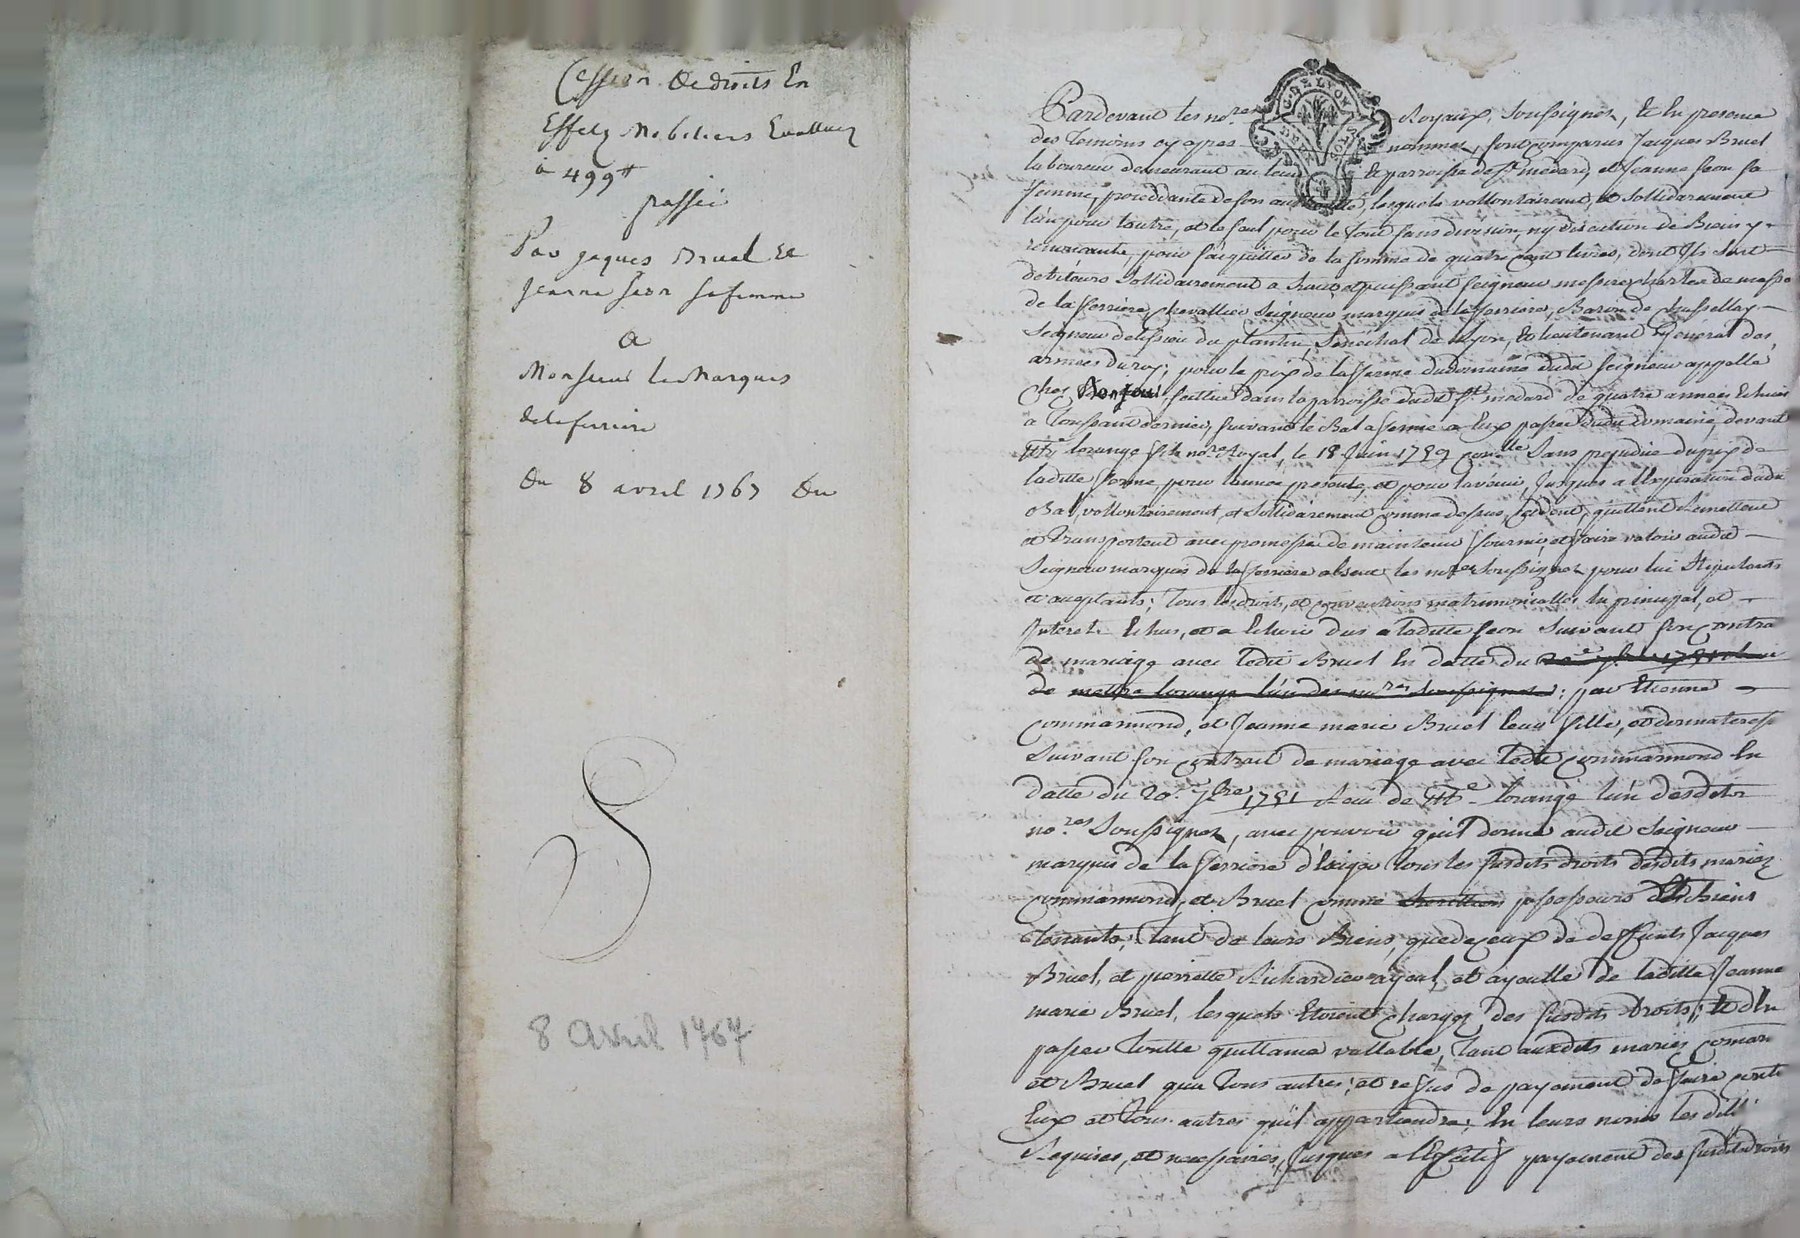 Cession de droits En
Effets Mobiliers Evalluez
à 499 tt
passée
Par jaques Bruel Et
jeanne seon sa femme
a
Monsieur le Marquis
de la ferriere
Du 8 avril 1767 Du
8 avril 1767
G. DE LYON
Pardevant les no.res Royaux Soussignez, & En presence
des Temoins cy apres nommes, sont comparus Jacques Bruel
laboureur demeurant au lieu & parroisse de St. medard, et Jeanne seon sa
femme, procédante de son authorité, lesquels vollontairement, et Sollidairement
l'un pour l'autre, et le seul pour le tout sans division, ny discution de Biens y
renoncants, pour s'acquitter de la somme de quatre cent livres, dont Ils sont
debiteurs Sollidairement a haut et puissant seigneur messire Charles de masso
de la ferriere, Chevallier Seigneur marquis de la ferriere, Baron de chasselay
Seigneur de lissieu du plantin, Senéchal de Lyon, & Lieutenant General des
armées du roy; pour le prix de la ferme du domaine dudit seigneur appellé
chez scittué dans la parroisse dudit St. médard de quatre années Echuës
a Toussaint dernier, suivant le Bail a ferme a Eux passé dudit domaine, devant
Me. lorange no.re Royal, le 18 Juin 1759 Sans prejudice du prix de
laditte ferme pour l'année présente, et pour l'avenir, Jusques a l'Expiration dudit
Bail, vollontairement, et Sollidairement comme dessus, cedent, quittent Remettent
et Transportent avec promesse de maintenir fournir, et faire valoir audit
Seigneur marquis de la ferriere absent les no.res Soussignez pour lui Stipulants
et acceptants; Tous les droits, et conventions matrimonialles En principal, et
Interet Echus, et a Echoir dus a laditte seon Suivant son contra
de mariage avec ledit Bruel En datte du
de maitre lorange l'un des no.res soussignez; par Etienne
commarmond, et Jeanne marie Bruel leur fille,
Suivant son contrait de mariage avec ledit commarmond En
datte du 20e. 7bre 1751 Reçu de Me. lorange l'un desdits
no.res Soussignez, avec pouvoir qu'il donne audit Seigneur
marquis de la ferriere d'Exiger Tous les susdits droits desdits mariez
commarmond, et Bruel comme possesseurs Et Biens
Tenants, Tant de leurs Biens, que de ceux de deffunts Jacques
Bruel, et pierrette Richardier ayeul, et ayeulle de laditte Jeanne
marie Bruel, lesquels Etoient chargez des susdits droits; & d'En
passer Toutte quittance vallable, Tant auxdits mariés comar
et Bruel que Tous autres; et refus de payement de faire contr
Eux et Tous autres qu'il appartiendra; En leurs noms les dili
Requises, et necessaires, Jusques a l'Effectif payement des susdits droits